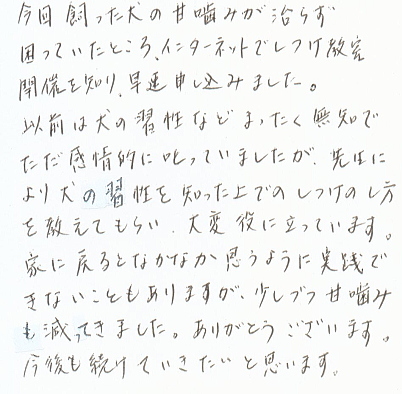 今回飼った犬の甘噛みが治らず
困っていたところ、インターネットでしつけ教室
開催を知り、早速申し込みました。
以前は犬の習性などまったく無知で
ただ感情的に叱っていましたが、先生に
より犬の習性を知った上でのしつけのし方
を教えてもらい、大変役に立っています。
家に戻るとなかなか思うように実践で
きないこともありますが、少しづつ甘噛み
も減ってきました。ありがとうございます。
今後も続けていきたいと思います。